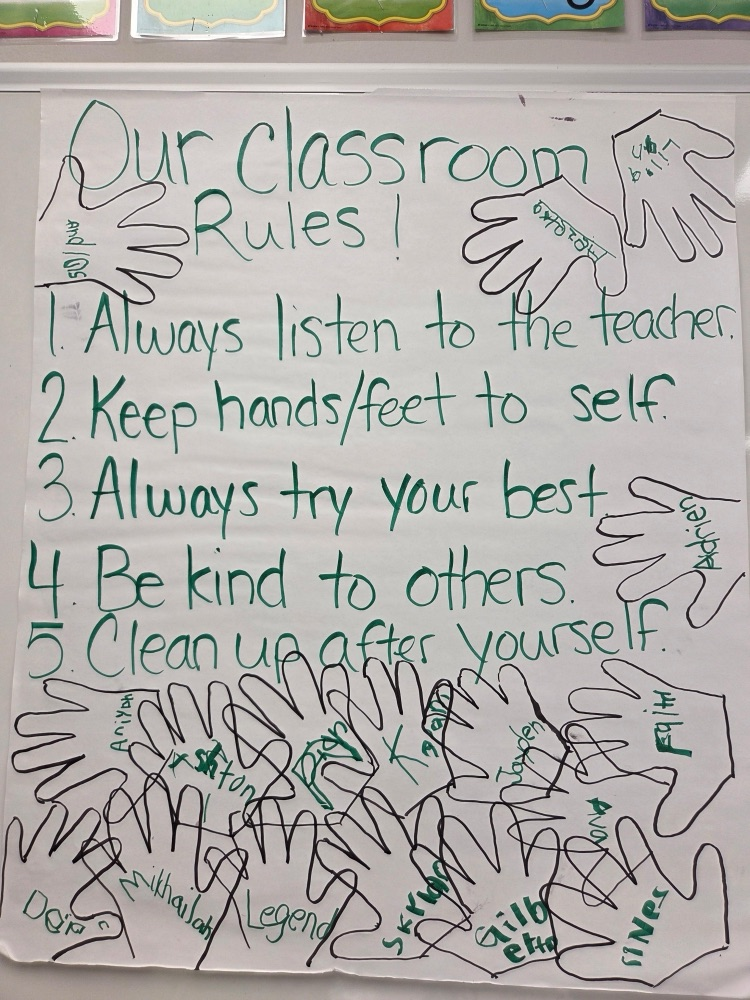 Our Classroom
Rules!
1. Always listen to the teacher.
2. Keep hands/feet to self.
3. Always try your best.
4. Be kind to others.
5. Clean up after yourself.
Adrien
Aniyah
Ashton
Jayden
Mikhailah
Legend
Gilb
ette